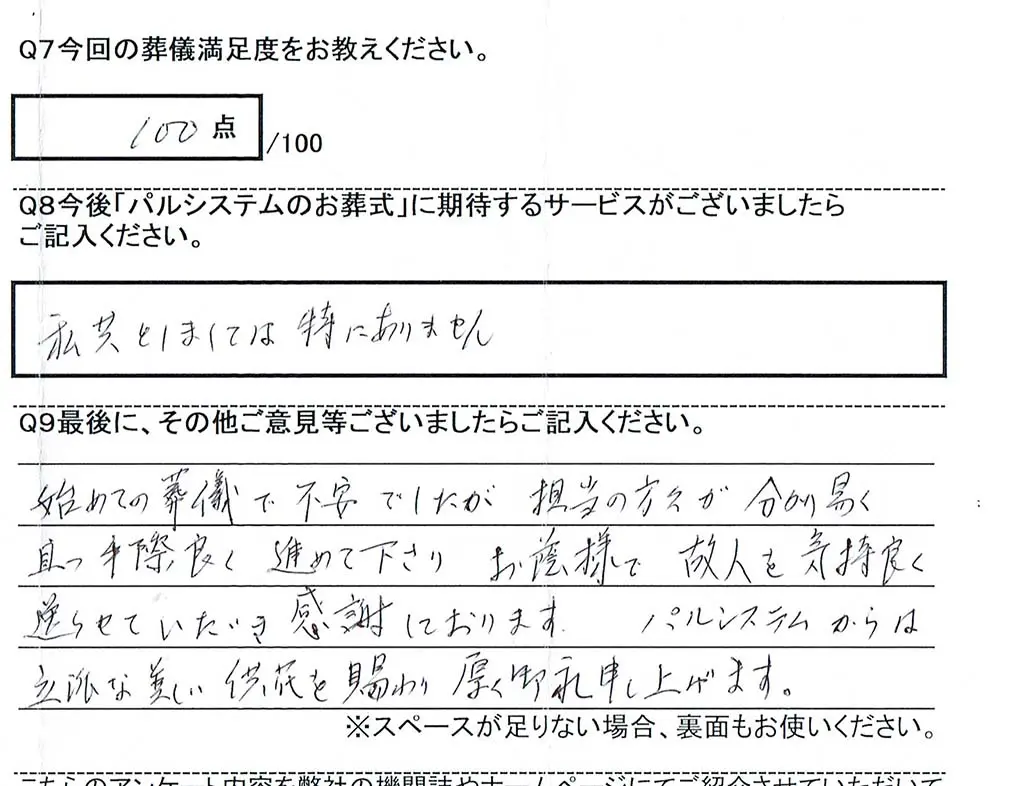 Q7今回の葬儀満足度をお教えください。
100点
/100
Q8今後「パルシステムのお葬式」に期待するサービスがございましたら
ご記入ください。
私共としましては特にありません
Q9最後に、その他ご意見等ございましたらご記入ください。
始めての葬儀で不安でしたが 担当の方々が 分かり易く
且つ手際良く 進めて下さり お蔭様で 故人を気持良く
送らせていただき感謝しております. パルシステムからは
立派な美しい供花を賜わり厚く御礼申し上げます。
※スペースが足りない場合、裏面もお使いください。
こちらのアンケート内容を弊社の機関誌やホームページにてご紹介させていただいて